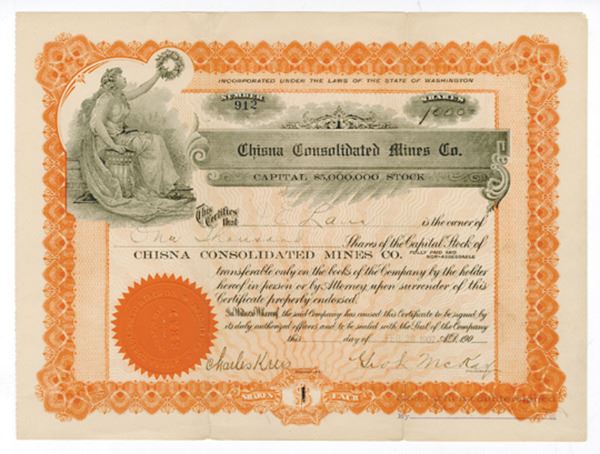 INCORPORATED UNDER THE LAWS OF THE STATE OF WASHINGTON
NUMBER
912
SHARES
1000
Chisna Consolidated Mines Co.
CAPITAL $5,000,000 STOCK
This Certifies that is the owner of
One Thousand Shares of the Capital Stock of
CHISNA CONSOLIDATED MINES CO. FULLY PAID AND NON-ASSESSABLE
transferable only on the books of the Company by the holder
hereof in person or by Attorney, upon surrender of this
Certificate properly endorsed.
In Witness Whereof, the said Company has caused this Certificate to be signed by
its duly authorized officers and to be sealed with the Seal of the Company
this day of A.D. 190
Charles Kreis Geo L McKay
SHARES $1 EACH
By